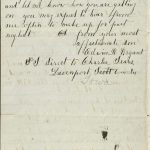 and let me know how you are getting
on you may expect to hear from
me often to make up for past
neglect from your most
affectionate son
Edwin H
P.S. direct to Charles
Davenport Scott County
Iowa